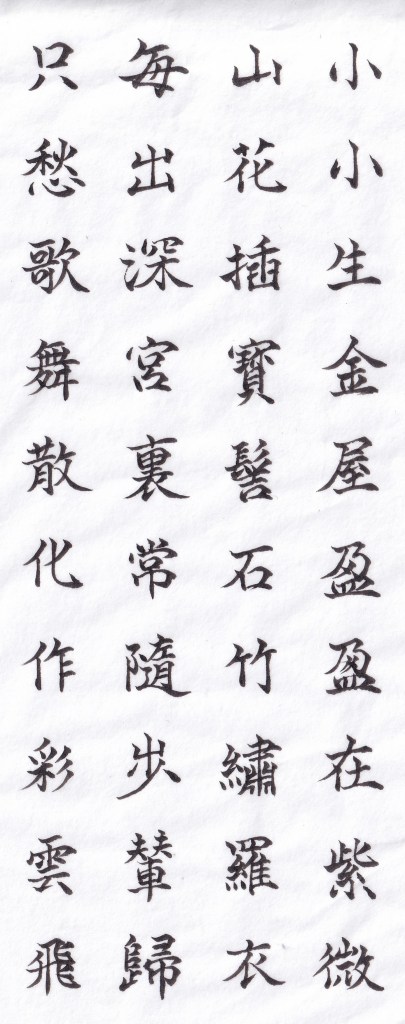 小小生金屋盈盈在紫微
山花插寶髻石竹繡羅衣
每出深宮裏常隨步輦歸
只愁歌舞散化作彩雲飛